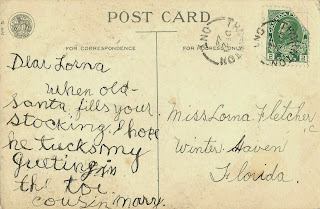 POST CARD
FOR CORRESPONDENCE
FOR ADDRESS ONLY
Dear Lorna
When old-
Santa, fills your
stocking, I hope
he tucks my
greeting in
the toe
cousin Mary.
Miss Lorna Fletcher
Winter Haven
Florida.